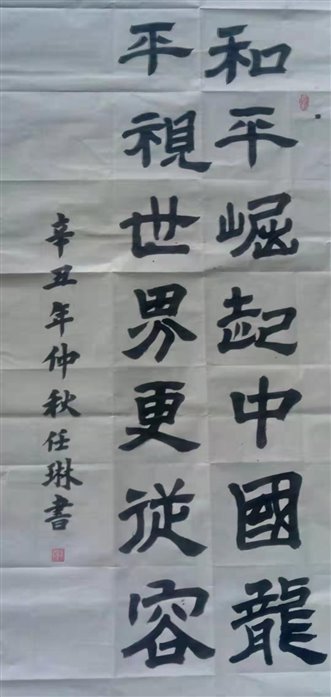 和平崛起中國龍
平視世界更從容
辛丑年仲秋任琳書